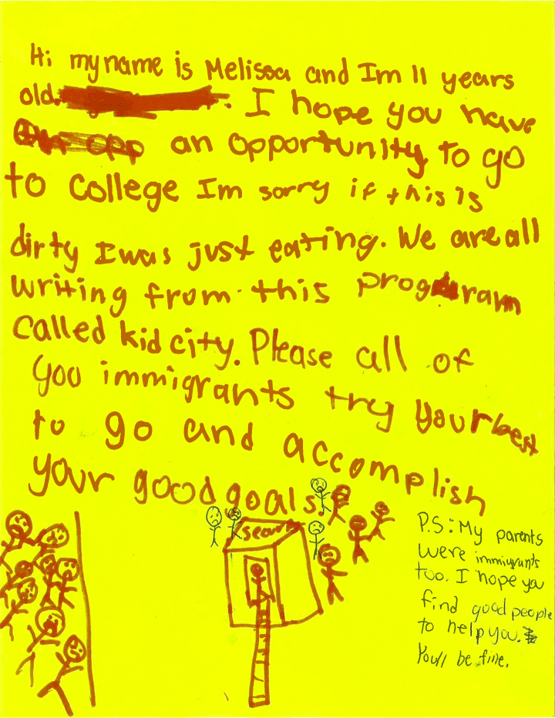 Hi my name is Melissa and Im 11 years
old. I hope you have
an opportunity to go
to college Im sorry if this is
dirty I was just eating. We are all
writing from this program
called kid city. Please all of
you immigrants try your best
to go and accomplish
your good goals.
P.S: My parents
were immigrants
too. I hope you
find good people
to help you.
You'll be fine.